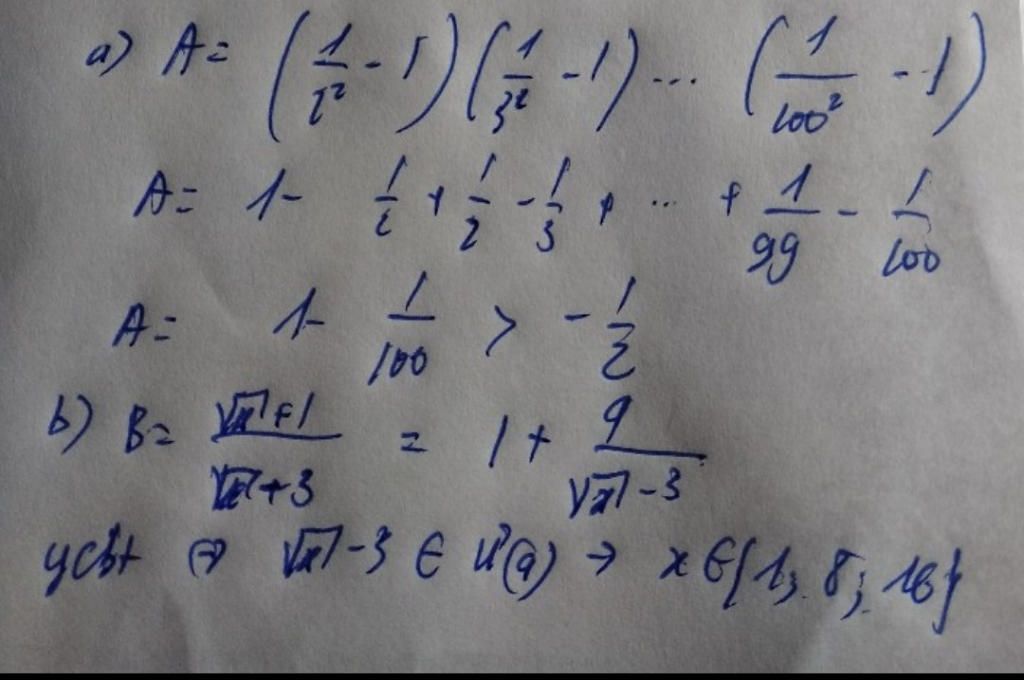 a) A = (1/2² - 1)(1/3² - 1)... (1/100² - 1)
A = 1 - 1/2 + 1/2 - 1/3 + ... + 1/99 - 1/100
A = 1 - 1/100 > -1/2
b) B = (√x + 1)/(√x + 3) = 1 + 9/(√x - 3)
ycbt ⇒ √x - 3 ∈ Ư(9) → x ∈ {1; 8; 16}